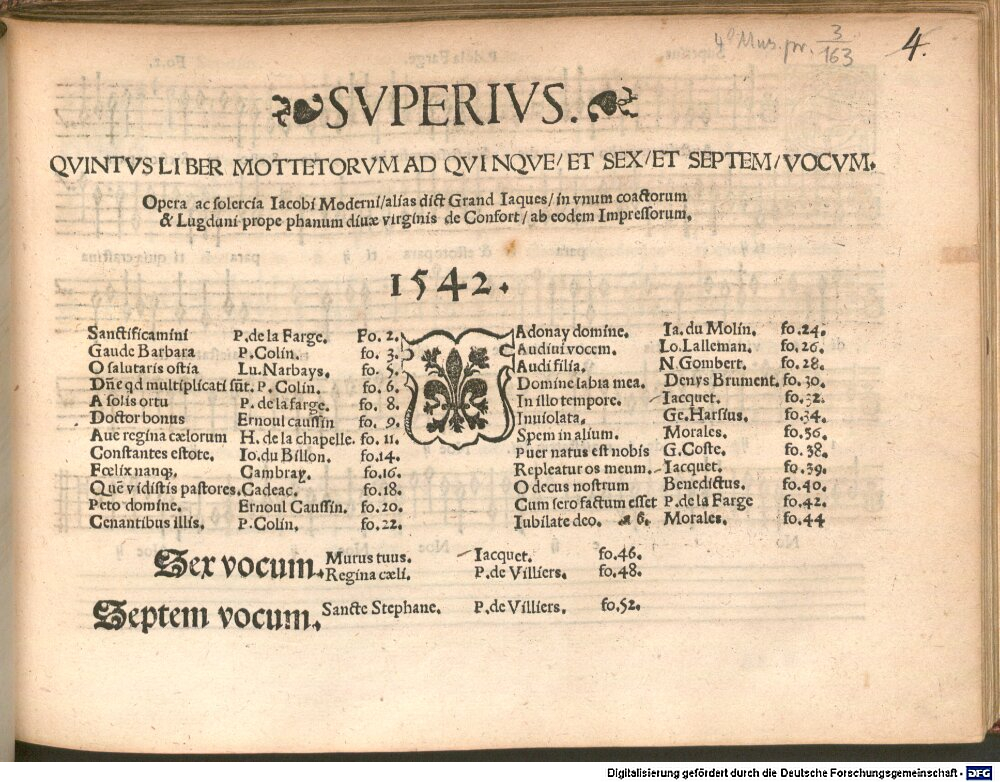 4° Mus. pr. 3/163 4.
SVPERIVS.
QVINTVS LIBER MOTTETORVM AD QVINQVE/ ET SEX/ ET SEPTEM/ VOCVM.
Opera ac solercia Iacobi Moderni/alias dict Grand Iaques/ in vnum coactorum
& Lugduni prope phanum diuæ virginis de Confort/ ab eodem Impressorum.
1542.
Sanctificamini P. de la Farge. Fo. 2.
Gaude Barbara P. Colin. fo. 3.
O salutaris ostia Lu. Narbays. fo. 5.
Dñe qd multiplicati sūt. P. Colin. fo. 6.
A solis ortu P. de la farge. fo. 8.
Doctor bonus Ernoul caussin fo. 9.
Aue regina cælorum H. de la chapelle. fo. 11.
Constantes estote. Io. du Billon. fo. 14.
Fœlix nanq; Cambray. fo. 16.
Quē vidistis pastores. Cadeac. fo. 18.
Peto domine. Ernoul Caussin. fo. 20.
Cenantibus illis. P. Colin. fo. 22.
Adonay domine. Ia. du Molin. fo. 24.
Audiui vocem. Lo. Lalleman. fo. 26.
Audi filia. N. Gombert. fo. 28.
Domine labia mea. Denys Brument. fo. 30.
In illo tempore. Iacquet. fo. 32.
Inuiolata. Ge. Harsius. fo. 34.
Spem in alium. Morales. fo. 36.
Puer natus est nobis G. Coste. fo. 38.
Repleatur os meum. Iacquet. fo. 39.
O decus nostrum Benedictus. fo. 40.
Cum sero factum esset P. de la Farge fo. 42.
Iubilate deo. a 6. Morales. fo. 44
Sex vocum. Murus tuus. Iacquet. fo. 46.
Regina cæli. P. de Villiers. fo. 48.
Septem vocum. Sancte Stephane. P. de Villiers. fo. 52.
Digitalisierung gefördert durch die Deutsche Forschungsgemeinschaft - DFG